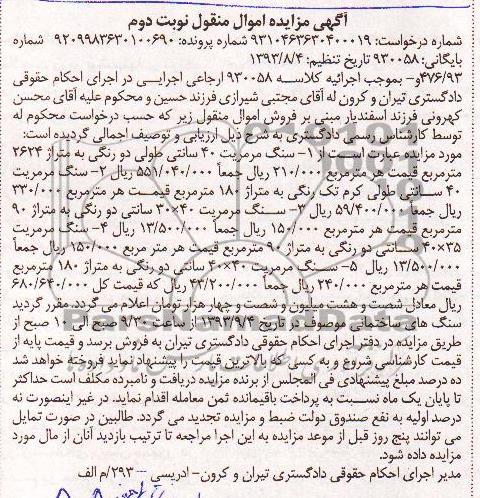 آگهی مزایده اموال منقول نوبت دوم
شماره درخواست: ۹۳۱۰۴۶۳۶۳۰۴۰۰۰۱۹ شماره پرونده: ۹۲۰۹۹۸۳۶۳۰۱۰۰۶۹۰ شماره
بایگانی: ۹۳۰۰۵۸ تاریخ تنظیم: ۱۳۹۳/۸/۴
۴۷۶/۹۳و- بموجب اجرائیه کلاسه ۹۳۰۰۵۸ ارجاعی اجرایی در اجرای احکام حقوقی
دادگستری تیران و کرون له آقای مجتبی شیرازی فرزند حسین و محکوم علیه آقای محسن
کهرونی فرزند اسفندیار مبنی بر فروش اموال منقول زیر که حسب درخواست محکوم له
توسط کارشناس رسمی دادگستری به شرح ذیل ارزیابی و توصیف اجمالی گردیده است:
مورد مزایده عبارت است از ۱- سنگ مرمریت ۴۰ سانتی طولی دو رنگی به متراژ ۲۶۲۴
مترمربع قیمت هر مترمربع ۲۱۰/۰۰۰ ریال جمعاً ۵۵۱/۰۴۰/۰۰۰ ریال ۲- سنگ مرمریت
۴۰ سانتی طولی کرم تک رنگ به متراژ ۱۸۰ مترمربع قیمت هر مترمربع ۳۳۰/۰۰۰
ریال جمعاً ۵۹/۴۰۰/۰۰۰ ریال ۳- سنگ مرمریت ۴۰×۳۰ سانتی دو رنگی به متراژ ۹۰
مترمربع قیمت هر مترمربع ۱۵۰/۰۰۰ ریال جمعاً ۱۳/۵۰۰/۰۰۰ ریال ۴- سنگ مرمریت
۴۰×۳۵ سانتی دو رنگی به متراژ ۹۰ مترمربع قیمت هر متر مربع ۱۵۰/۰۰۰ ریال جمعاً
۱۳/۵۰۰/۰۰۰ ریال ۵- سنگ مرمریت ۴۰×۲۰ سانتی دو رنگی به متراژ ۱۸۰ مترمربع
قیمت هر مترمربع ۲۴۰/۰۰۰ ریال جمعاً ۴۳/۲۰۰/۰۰۰ ریال که قیمت کل ۶۸۰/۶۴۰/۰۰۰
ریال معادل شصت و هشت میلیون و شصت و چهار هزار تومان اعلام می گردد. مقرر گردید
سنگ های ساختمانی موصوف در تاریخ ۱۳۹۳/۹/۴ از ساعت ۹/۳۰ صبح الی ۱۰ صبح از
طریق مزایده در دفتر اجرای احکام حقوقی دادگستری تیران به فروش برسد و قیمت پایه از
قیمت کارشناسی شروع و به کسی که بالاترین قیمت را پیشنهاد نماید فروخته خواهد شد
ده درصد مبلغ پیشنهادی فی المجلس از برنده مزایده دریافت و نامبرده مکلف است حداکثر
تا پایان یک ماه نسبت به پرداخت باقیمانده ثمن معامله اقدام نماید. در غیر اینصورت نه
درصد اولیه به نفع صندوق دولت ضبط و مزایده تجدید می گردد. طالبین در صورت تمایل
می توانند پنج روز قبل از موعد مزایده به این اجرا مراجعه تا ترتیب بازدید آنان از مال مورد
مزایده داده شود.
مدیر اجرای احکام حقوقی دادگستری تیران و کرون- ادریسی --- ۲۹۳/م الف